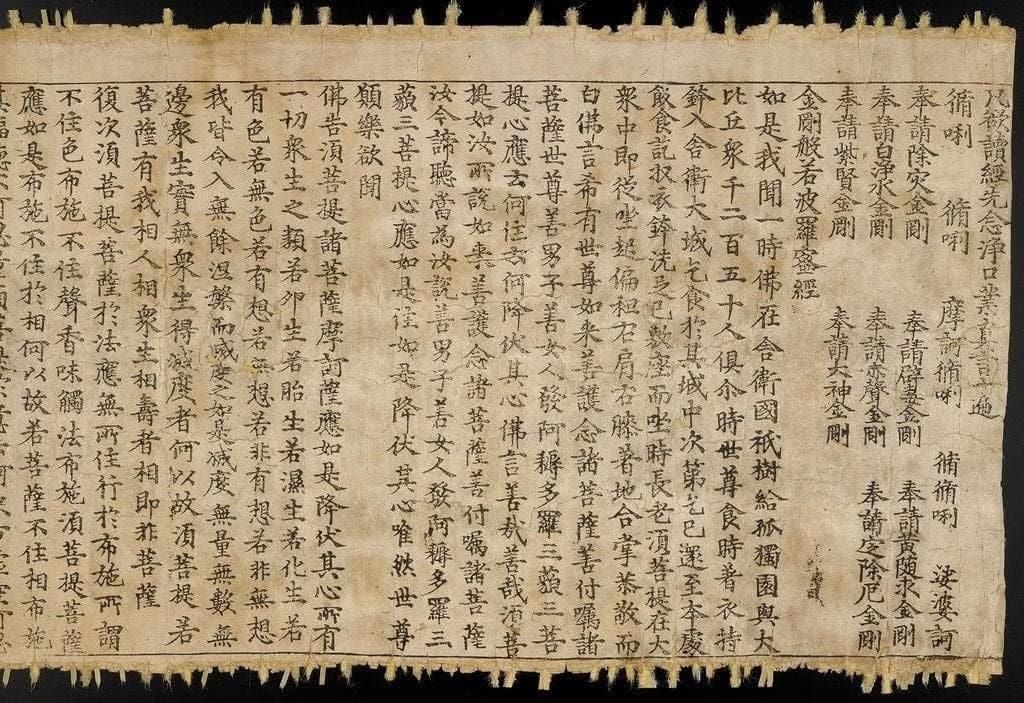 凡欲讀經先念淨口業真言一遍
脩唎 脩唎 摩訶脩唎 脩脩唎 娑婆訶
奉請除灾金剛 奉請辟毒金剛 奉請黃随求金剛
奉請白淨水金剛 奉請赤聲金剛 奉請定除厄金剛
奉請紫賢金剛 奉請大神金剛
金剛般若波羅蜜經
如是我聞一時佛在舍衛國祇樹給孤獨園與大
比丘衆千二百五十人俱尒時世尊食時著衣持
鉢入舍衛大城乞食於其城中次第乞已還至本處
飯食訖収衣鉢洗足已敷座而坐時長老湏菩提在大
衆中即從坐起偏袒右肩右膝著地合掌恭敬而
白佛言希有世尊如来善護念諸菩薩善付囑諸
菩薩世尊善男子善女人發阿耨多羅三藐三菩
提心應云何住云何降伏其心佛言善哉善哉湏菩
提如汝所說如来善護念諸菩薩善付囑諸菩薩
汝今諦聽當為汝說善男子善女人發阿耨多羅三
藐三菩提心應如是住如是降伏其心唯然世尊
願樂欲聞
佛告湏菩提諸菩薩摩訶薩應如是降伏其心所有
一切衆生之類若卵生若胎生若濕生若化生若
有色若無色若有想若無想若非有想若非無想
我皆令入無餘涅槃而滅度之如是滅度無量無數無
邊衆生實無衆生得滅度者何以故湏菩提若
菩薩有我相人相衆生相壽者相即非菩薩
復次湏菩提菩薩於法應無所住行於布施所謂
不住色布施不住聲香味觸法布施湏菩提菩薩
應如是布施不住於相何以故若菩薩不住相布施